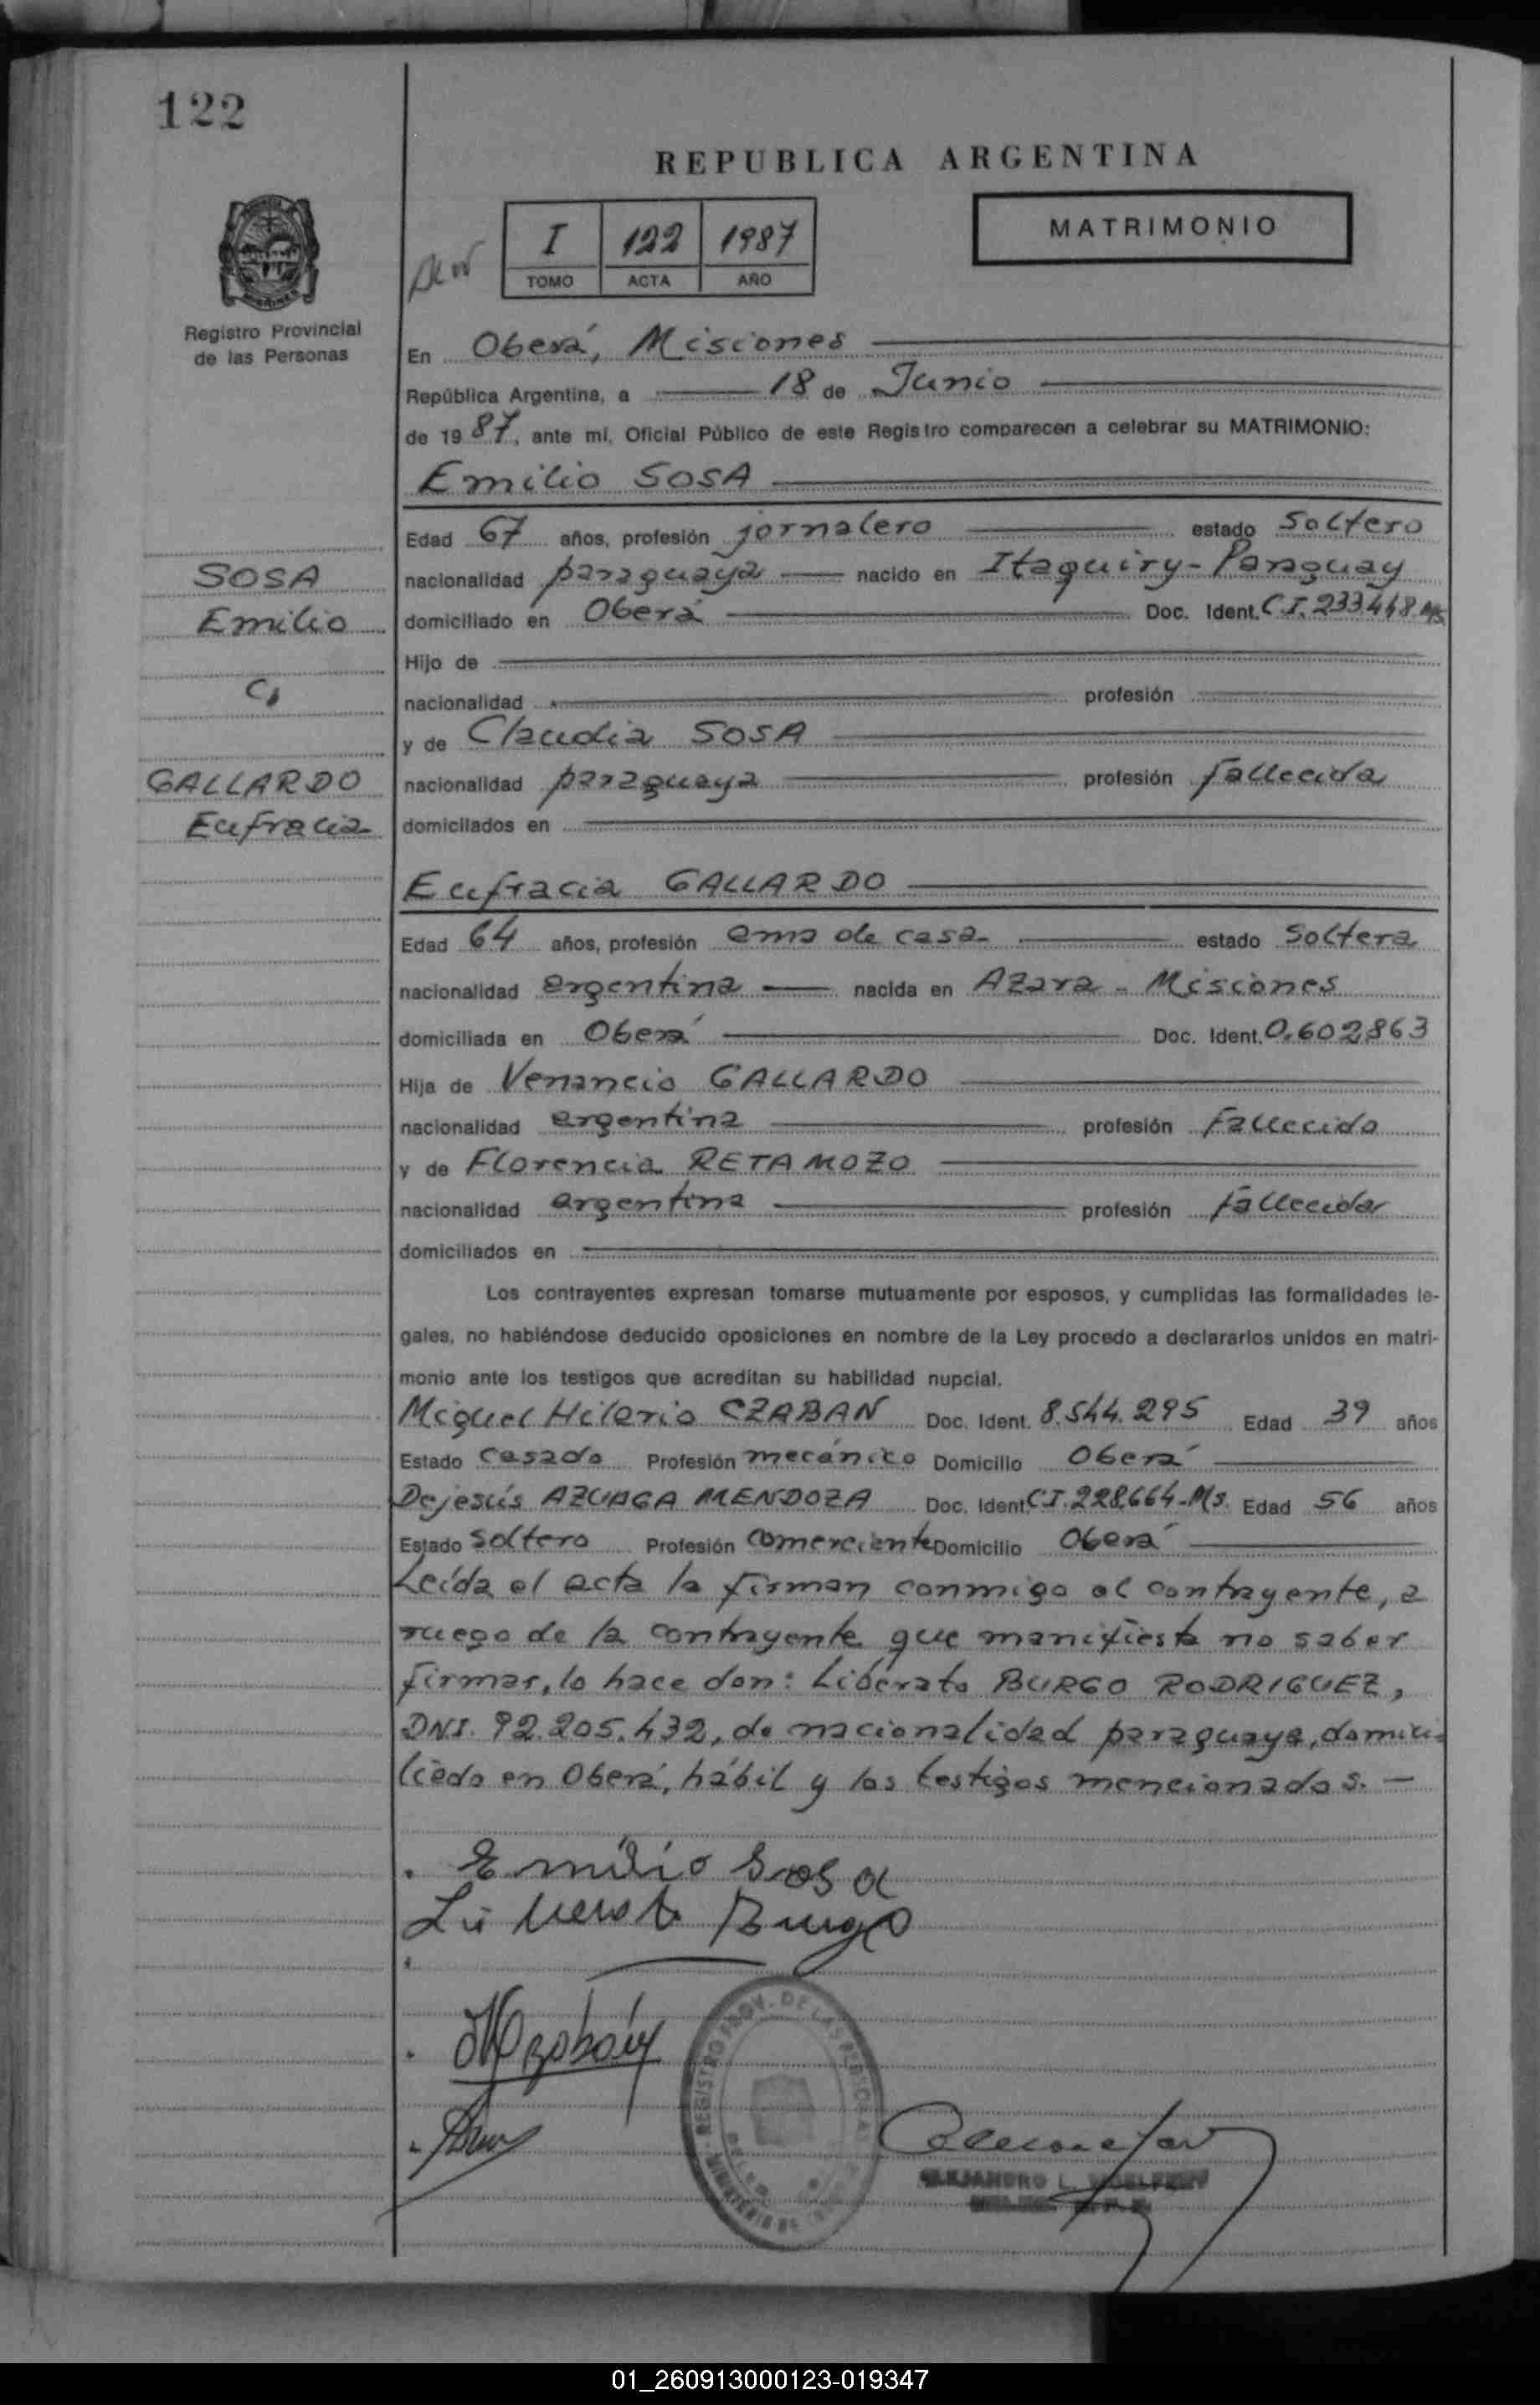 122
REPUBLICA ARGENTINA
MATRIMONIO
I 122 1987
TOMO ACTA AÑO
Registro Provincial
de las Personas
En Oberá, Misiones
República Argentina, a 18 de Junio
de 1987, ante mí, Oficial Público de este Registro comparecen a celebrar su MATRIMONIO:
Emilio SOSA
Edad 67 años, profesión jornalero estado Soltero
nacionalidad paraguaya nacido en Itaquiry-Paraguay
domiciliado en Oberá Doc. Ident. C.I. 233.448.Ms
Hijo de
nacionalidad profesión
y de Claudia SOSA
nacionalidad paraguaya profesión fallecida
domiciliados en
SOSA
Emilio
c,
GALLARDO
Eufracia
Eufracia GALLARDO
Edad 64 años, profesión ama de casa- estado Soltera
nacionalidad argentina nacida en Azara - Misiones
domiciliada en Oberá Doc. Ident. 0.602.863
Hija de Venancio GALLARDO
nacionalidad argentina profesión Fallecido
y de Florencia RETAMOZO
nacionalidad argentina profesión fallecida
domiciliados en
Los contrayentes expresan tomarse mutuamente por esposos, y cumplidas las formalidades le-
gales, no habiéndose deducido oposiciones en nombre de la Ley procedo a declararlos unidos en matri-
monio ante los testigos que acreditan su habilidad nupcial.
Miguel Hilario CZABAN Doc. Ident. 8.544.295 Edad 39 años
Estado Casado Profesión mecánico Domicilio Oberá
Dejesús AZUAGA MENDOZA Doc. Ident. C.I. 228.664-Ms. Edad 56 años
Estado Soltero Profesión comerciante Domicilio Oberá
Leída el acta la firman conmigo el contrayente, a
ruego de la contrayente que manifiesta no saber
firmar, lo hace don: Liberato BURGO RODRIGUEZ,
DNI. 92.205.432, de nacionalidad paraguaya, domici-
liado en Oberá, hábil y los testigos mencionados. -
Emilio Sosa
Liberato Burgo
REGISTRO PROV. DE LAS PERSONAS
MINISTERIO DE
ALEJANDRO L.
01_260913000123-019347